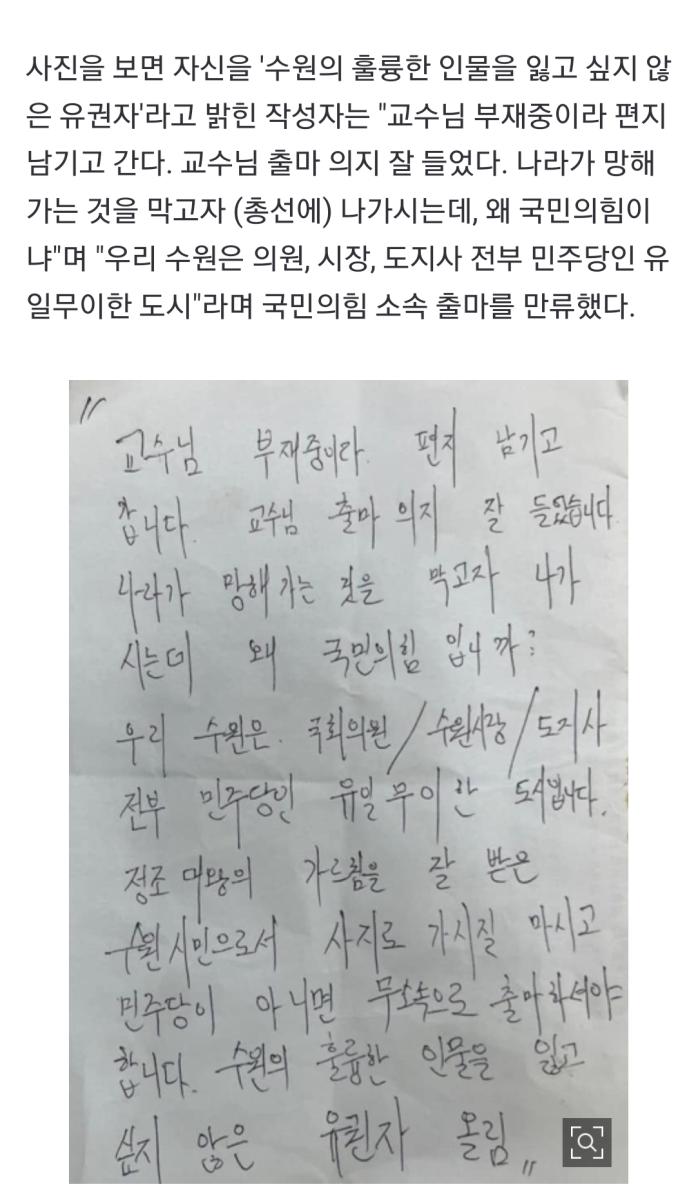 사진을 보면 자신을 '수원의 훌륭한 인물을 잃고 싶지 않
은 유권자'라고 밝힌 작성자는 "교수님 부재중이라 편지
남기고 간다. 교수님 출마 의지 잘 들었다. 나라가 망해
가는 것을 막고자 (총선에) 나가시는데, 왜 국민의힘이
냐"며 "우리 수원은 의원, 시장, 도지사 전부 민주당인 유
일무이한 도시"라며 국민의힘 소속 출마를 만류했다.
"
교수님 부재중이라. 편지 남기고
갑니다. 교수님 출마 의지 잘 들었습니다
나라가 망해 가는 것을 막고자 나가
시는데 왜 국민의힘 입니까?
우리 수원은. 국회의원/수원시장/도지사
전부 민주당인 유일무이한 도시입니다.
정조 대왕의 가르침을 잘 받은
수원시민으로서 사지로 가시질 마시고
민주당이 아니면 무소속으로 출마하셔야
합니다. 수원의 훌륭한 인물을 잃고
싶지 않은 유권자 올림"